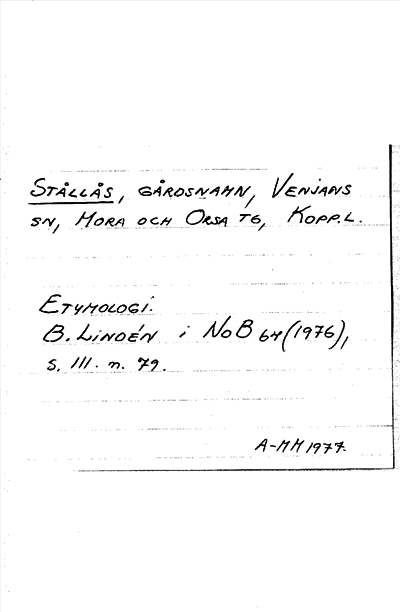 STÅLLÅS, GÅRDSNAMN, VENJANS
SN, MORA OCH ORSA TG, KOPP.L.
ETYMOLOGI.
B. LINDÉN i NoB 64 (1976),
S. 111. n. 79.
A-MM 1977.